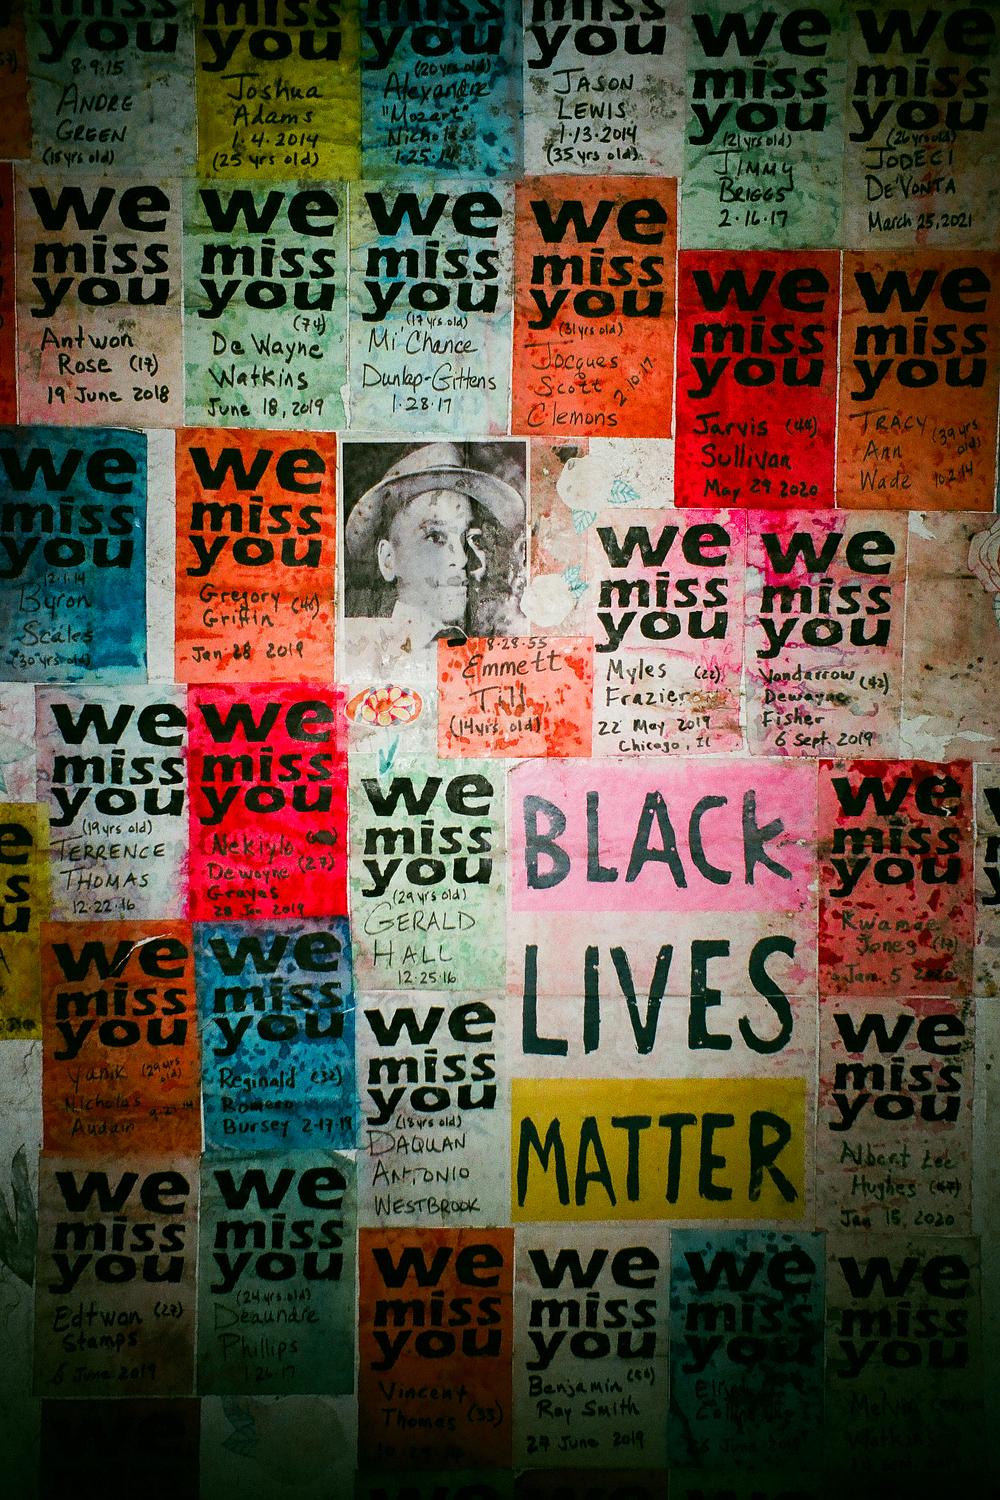 miss
you
8.9.15
ANDRE
GREEN
(15 yrs old)
miss
you
Joshua
Adams
1.4.2014
(25 yrs old)
miss
you
(20 yrs old)
Alexandre
"Mozart"
Nicholas
1.25.14
miss
you
JASON
LEWIS
1.13.2014
(35 yrs old)
we
miss
you
(21 yrs old)
JIMMY
BRIGGS
2.16.17
we
miss
you
(26 yrs old)
JODECI
DE'VONTA
March 25, 2021
we
miss
you
Antwon
Rose (17)
19 June 2018
we
miss
you
(74)
De Wayne
Watkins
June 18, 2019
we
miss
you
(17 yrs old)
Mi'Chance
Dunlap-Gittens
1.28.17
we
miss
you
(31 yrs old)
Jocques
Scott
Clemons
2.10.17
we
miss
you
Jarvis (44)
Sullivan
May 29 2020
we
miss
you
TRACY
Ann
Wade
(39 yrs
old)
10.2.14
we
miss
you
12.1.14
Byron
Scales
(30 yrs old)
we
miss
you
Gregory
Griffin (46)
Jan 28 2019
8.28.55
Emmett
Till
(14 yrs. old)
we
miss
you
Myles (22)
Frazier
22 May 2019
Chicago, IL
we
miss
you
Vondarrow (42)
Dewayne
Fisher
6 Sept. 2019
we
miss
you
(19 yrs old)
TERRENCE
THOMAS
12.22.16
we
miss
you
Nekiylo
Dewayne (27)
Graves
28 Jan 2019
we
miss
you
(29 yrs old)
GERALD
HALL
12.25.16
BLACK
LIVES
MATTER
we
miss
you
Kwamae
Jones (17)
Jan. 5 2020
we
miss
you
Yanik (29 yrs
old)
Nicholas
Audain
we
miss
you
Reginald (32)
Romero
Bursey 2.17.19
we
miss
you
(18 yrs old)
DAQUAN
ANTONIO
WESTBROOK
we
miss
you
Albert Lee
Hughes (47)
Jan 15, 2020
we
miss
you
Edtwon (27)
Stamps
6 June 2019
we
miss
you
(24 yrs. old)
Deaundre
Phillips
1.26.17
we
miss
you
Vincent
Thomas (33)
we
miss
you
Benjamin
Ray Smith
24 June 2019
we
miss
you
June
we
miss
you